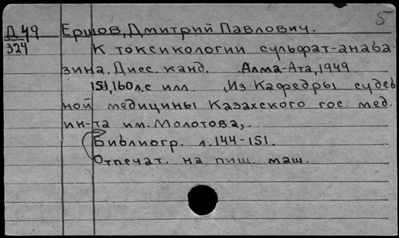 5
Д 49 Ершов, Дмитрий Павлович.
324 К токсикологии сульфат-анаба-
зина. Дисс. канд. Алма-Ата, 1949
151, 160 л. с илл. Из Кафедры судеб
ной медицины Казахского гос. мед.
ин-та им. Молотова,.
Библиогр. л. 144-151.
Отпечат. на пиш. маш.